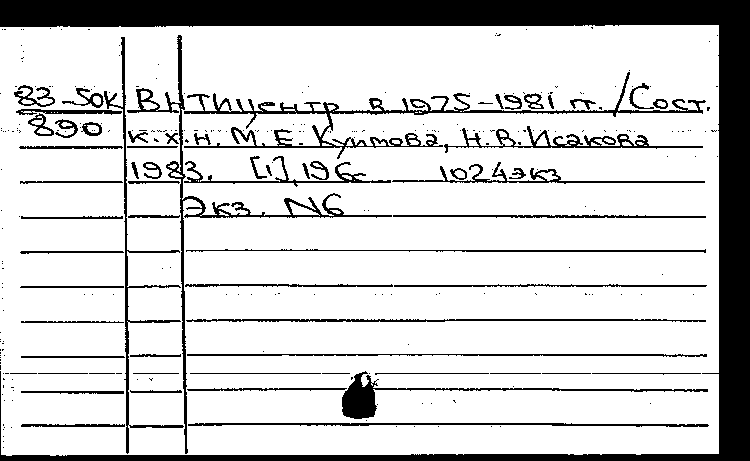 83-50к ВНТИцентр в 1975-1981 гг. / Сост.
890 к.х.н. М.Е. Куимова, Н.В. Исакова
1983. [1], 196с 1024экз
Экз. N6